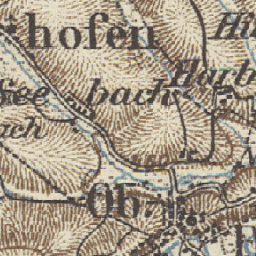 hofen
Hi
See bach
Harb
ach
Ob.